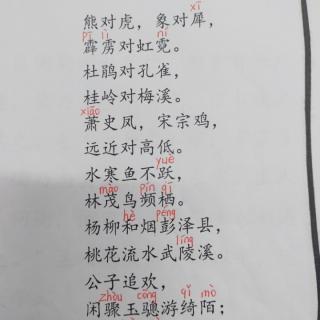 xī
熊对虎，象对犀，
pī lì ní
霹雳对虹霓。
杜鹃对孔雀，
桂岭对梅溪。
xiāo
萧史凤，宋宗鸡，
远近对高低。
yuè
水寒鱼不跃，
mào pín qī
林茂鸟频栖。
hè péng
杨柳和烟彭泽县，
líng
桃花流水武陵溪。
公子追欢，
zhòu cōng qǐ mò
闲骤玉骢游绮陌；